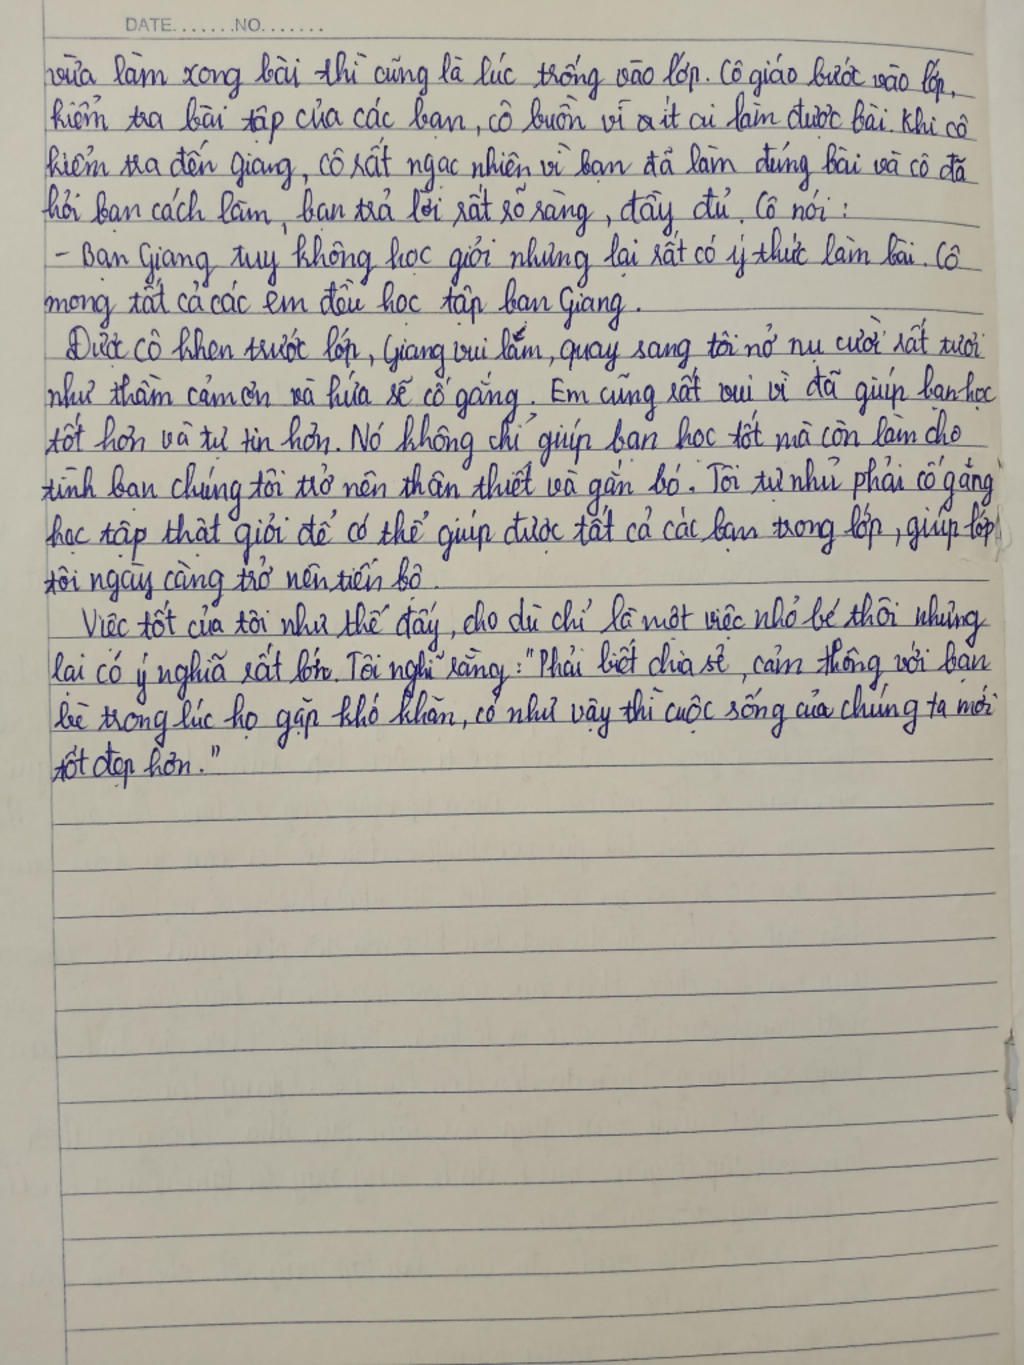 DATE.......NO.......
vừa làm xong bài thì cũng là lúc trống vào lớp. Cô giáo bước vào lớp,
kiểm tra bài tập của các bạn, cô buồn vì ít ai làm được bài. Khi cô
kiểm tra đến Giang, cô rất ngạc nhiên vì bạn đã làm đúng bài và cô đã
hỏi bạn cách làm, bạn trả lời rất rõ ràng, đầy đủ. Cô nói:
- Bạn Giang tuy không học giỏi nhưng lại rất có ý thức làm bài. Cô
mong tất cả các em đều học tập bạn Giang.
Được cô khen trước lớp, Giang vui lắm, quay sang tôi nở nụ cười rất tươi
như thầm cảm ơn và hứa sẽ cố gắng. Em cũng rất vui vì đã giúp bạn học
tốt hơn và tự tin hơn. Nó không chỉ giúp bạn học tốt mà còn làm cho
tình bạn chúng tôi trở nên thân thiết và gắn bó. Tôi tự nhủ phải cố gắng
học tập thật giỏi để có thể giúp được tất cả các bạn trong lớp, giúp lớp
tôi ngày càng trở nên tiến bộ.
Việc tốt của tôi như thế đấy, cho dù chỉ là một việc nhỏ bé thôi nhưng
lại có ý nghĩa rất lớn. Tôi nghĩ rằng: "Phải biết chia sẻ, cảm thông với bạn
bè trong lúc họ gặp khó khăn, có như vậy thì cuộc sống của chúng ta mới
tốt đẹp hơn."